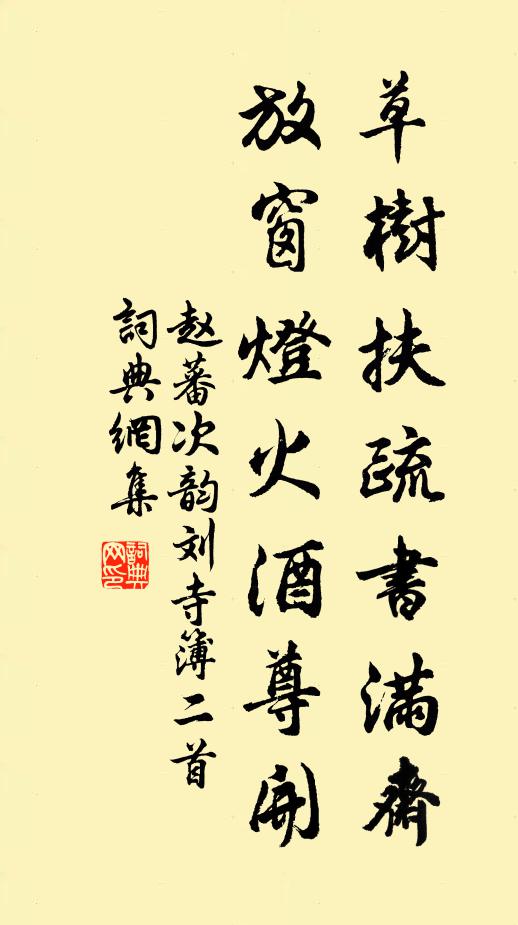 草樹扶疏書滿齋
放窗燈火酒尊開
赵蕃次韵刘寺簿二首
詞典網集
詞典
网印